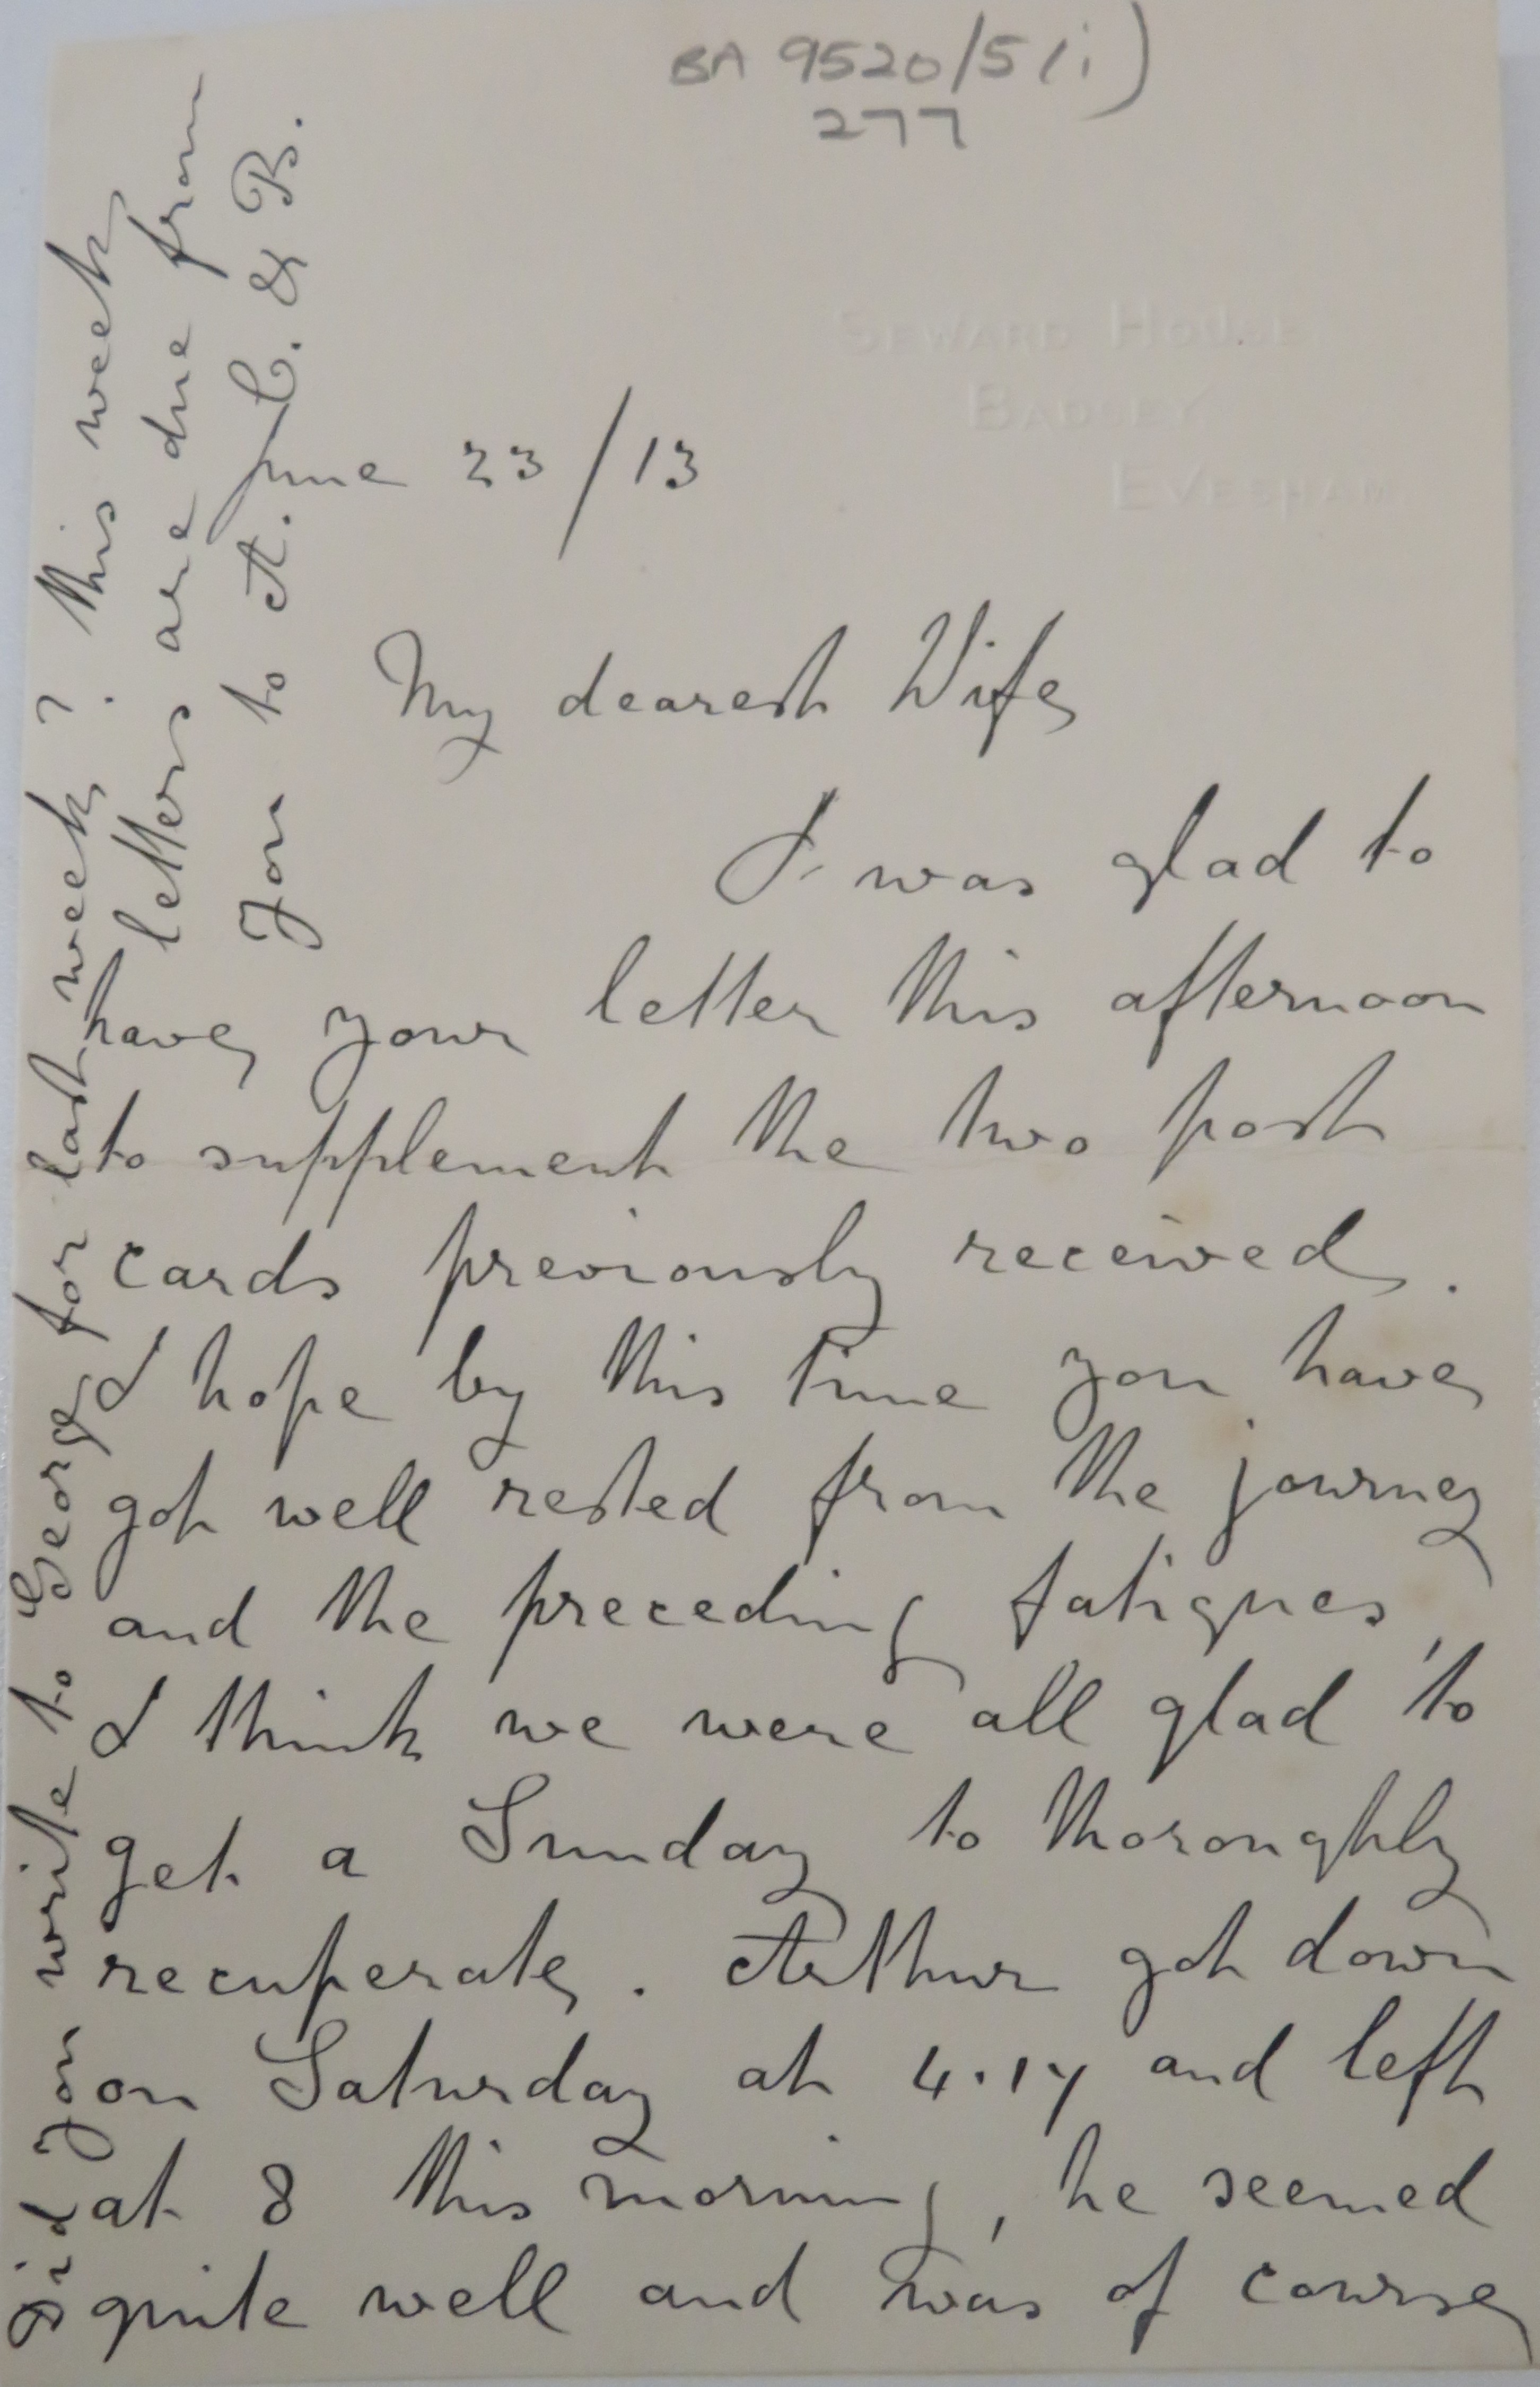 BA 9520/5(i)
277
SEWARD HOUSE
BADSEY
EVESHAM
June 23/13
My dearest Wife
I was glad to
have your letter this afternoon
to supplement the two post
cards previously received.
I hope by this time you have
got well rested from the journey
and the preceding fatigues,
I think we were all glad to
get a Sunday to thoroughly
recuperate. Arthur got down
on Saturday at 4.17 and left
at 8 this morning, he seemed
quite well and was of course
Did you write to George for last week? This week
letters are due from
you to A. C. & B.